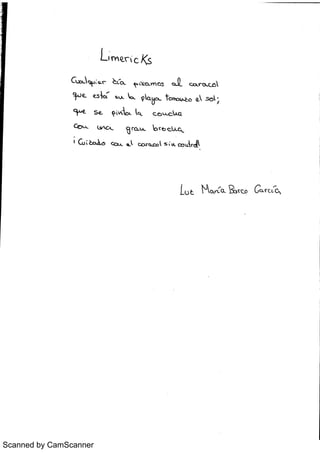 Limericks
Cualquier día pisamos al caracol
que está en la playa tomando el sol;
que se pinta la concha
con una gran brocha
¡Cuidado con el caracol sin control!
Luz María Barco García
Scanned by CamScanner